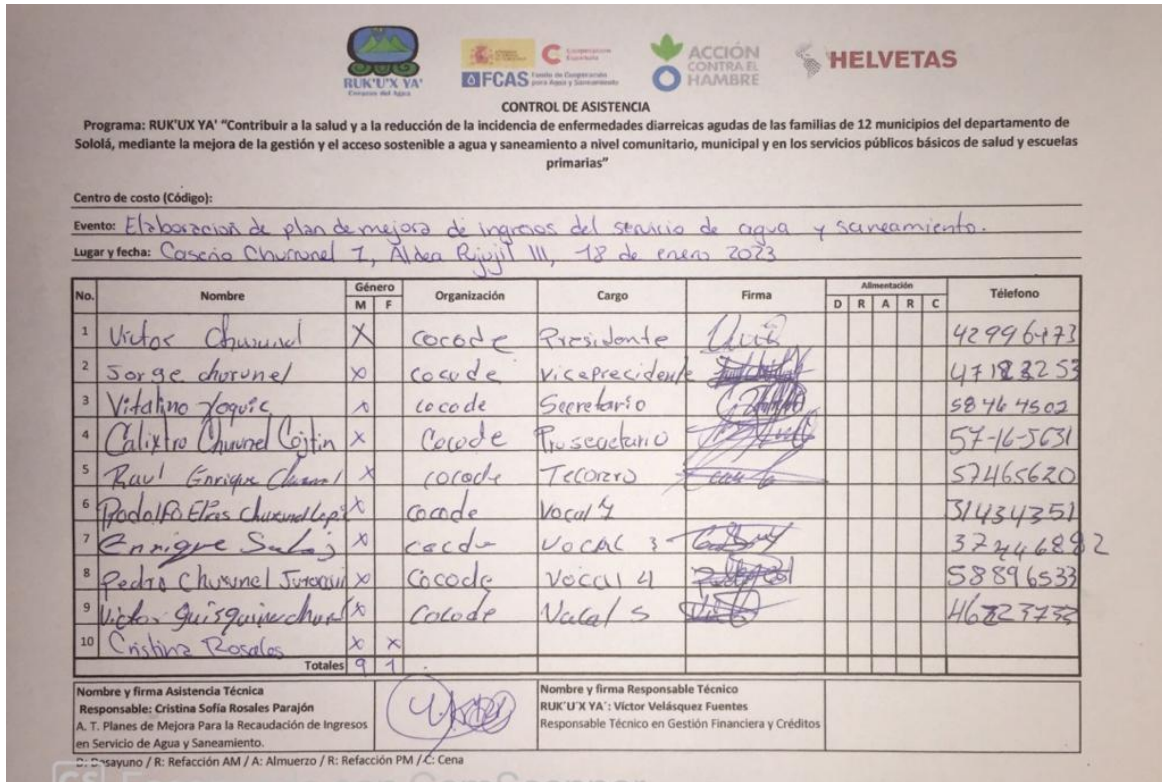 RUK'U'X YA'
Corazón del Agua
Cooperación Española
FCAS Fondo de Cooperación para Agua y Saneamiento
ACCIÓN CONTRA EL HAMBRE
HELVETAS
CONTROL DE ASISTENCIA
Programa: RUK'UX YA' “Contribuir a la salud y a la reducción de la incidencia de enfermedades diarreicas agudas de las familias de 12 municipios del departamento de
Sololá, mediante la mejora de la gestión y el acceso sostenible a agua y saneamiento a nivel comunitario, municipal y en los servicios públicos básicos de salud y escuelas
primarias”
Centro de costo (Código):
Evento: Elaboracion de plan de mejora de ingresos del servicio de agua y saneamiento.
Lugar y fecha: Caserio Churunel 1, Aldea Pujujil III, 18 de enero 2023
No. Nombre Género M F Organización Cargo Firma Alimentación D R A R C Télefono
1 Victor Churunel X cocode Presidente 42996473
2 Jorge churunel X cocode viceprecidente 47182253
3 Vitalino Yoquic X cocode Secretario 58464502
4 Calixtro Churunel Cojtin X Cocode Prosecretario 57-16-5631
5 Raul Enrique Churunel X cocode Tecorero 57465620
6 Rodolfo Elias Churunel X Cocode Vocal 31434351
7 Enrique X Vocal 3
8 Pedro Churunel X Cocode Vocal 4 58896533
9 Victor X Cocode Vocal 5
10 Cristina Rosales X X
Totales 9 1
Nombre y firma Asistencia Técnica
Responsable: Cristina Sofía Rosales Parajón
A. T. Planes de Mejora Para la Recaudación de Ingresos
en Servicio de Agua y Saneamiento.
Nombre y firma Responsable Técnico
RUK'U'X YA': Víctor Velásquez Fuentes
Responsable Técnico en Gestión Financiera y Créditos
D: Desayuno / R: Refacción AM / A: Almuerzo / R: Refacción PM / C: Cena
CS